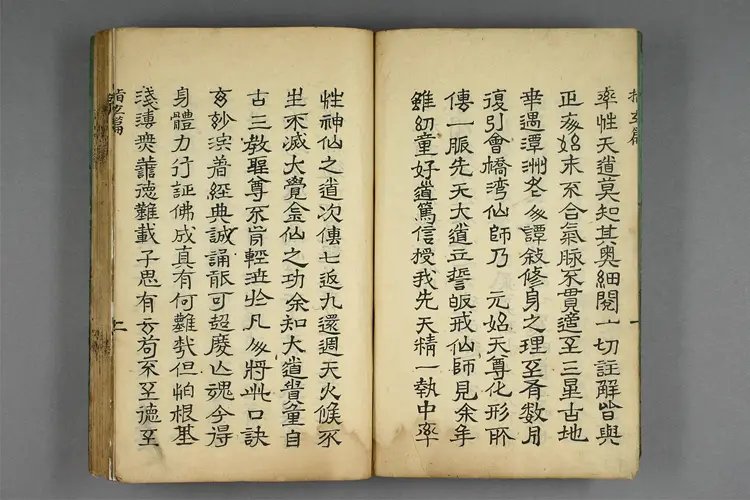 指玄篇
率性天道莫知其奧細閱一切註解皆與
正始末不合氣脉不貫適至三星古地
幸遇潭洲老譚敍修身之理至有數月
復引會橋湾仙師乃 元始天尊化形所
傳一脈先天大道立誓皈戒仙師見余年
雖幼童好道篤信授我先天精一執中率
一
性神仙之道次傳七返九還週天火候不
生不滅大覺金仙之功余知大道貴重自
古三教聖尊不肯輕泄於凡將此口訣
玄妙深著經典誠誦能可超度亡魂今得
身體力行証佛成真有何難哉但怕根基
淺薄衆善德難載子思有云苟不至德至
指玄篇
二